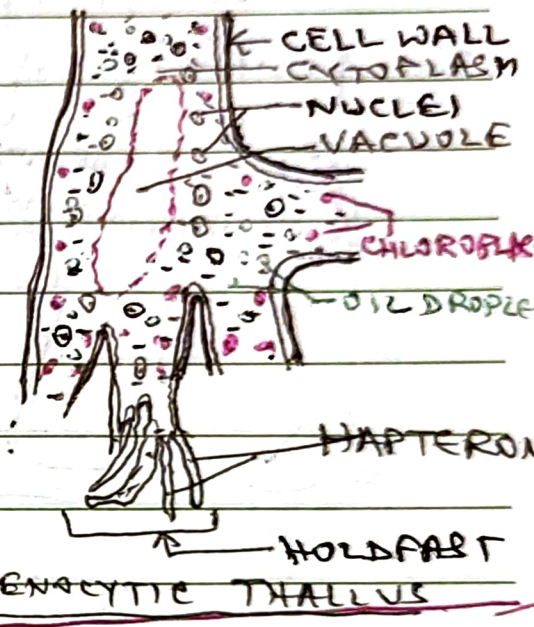 CELL WALL
CYTOPLASM
NUCLEI
VACUOLE
CHLOROPLAS
OIL DROPLE
HAPTERON
HOLDFAST
ENOCYTIC THALLUS